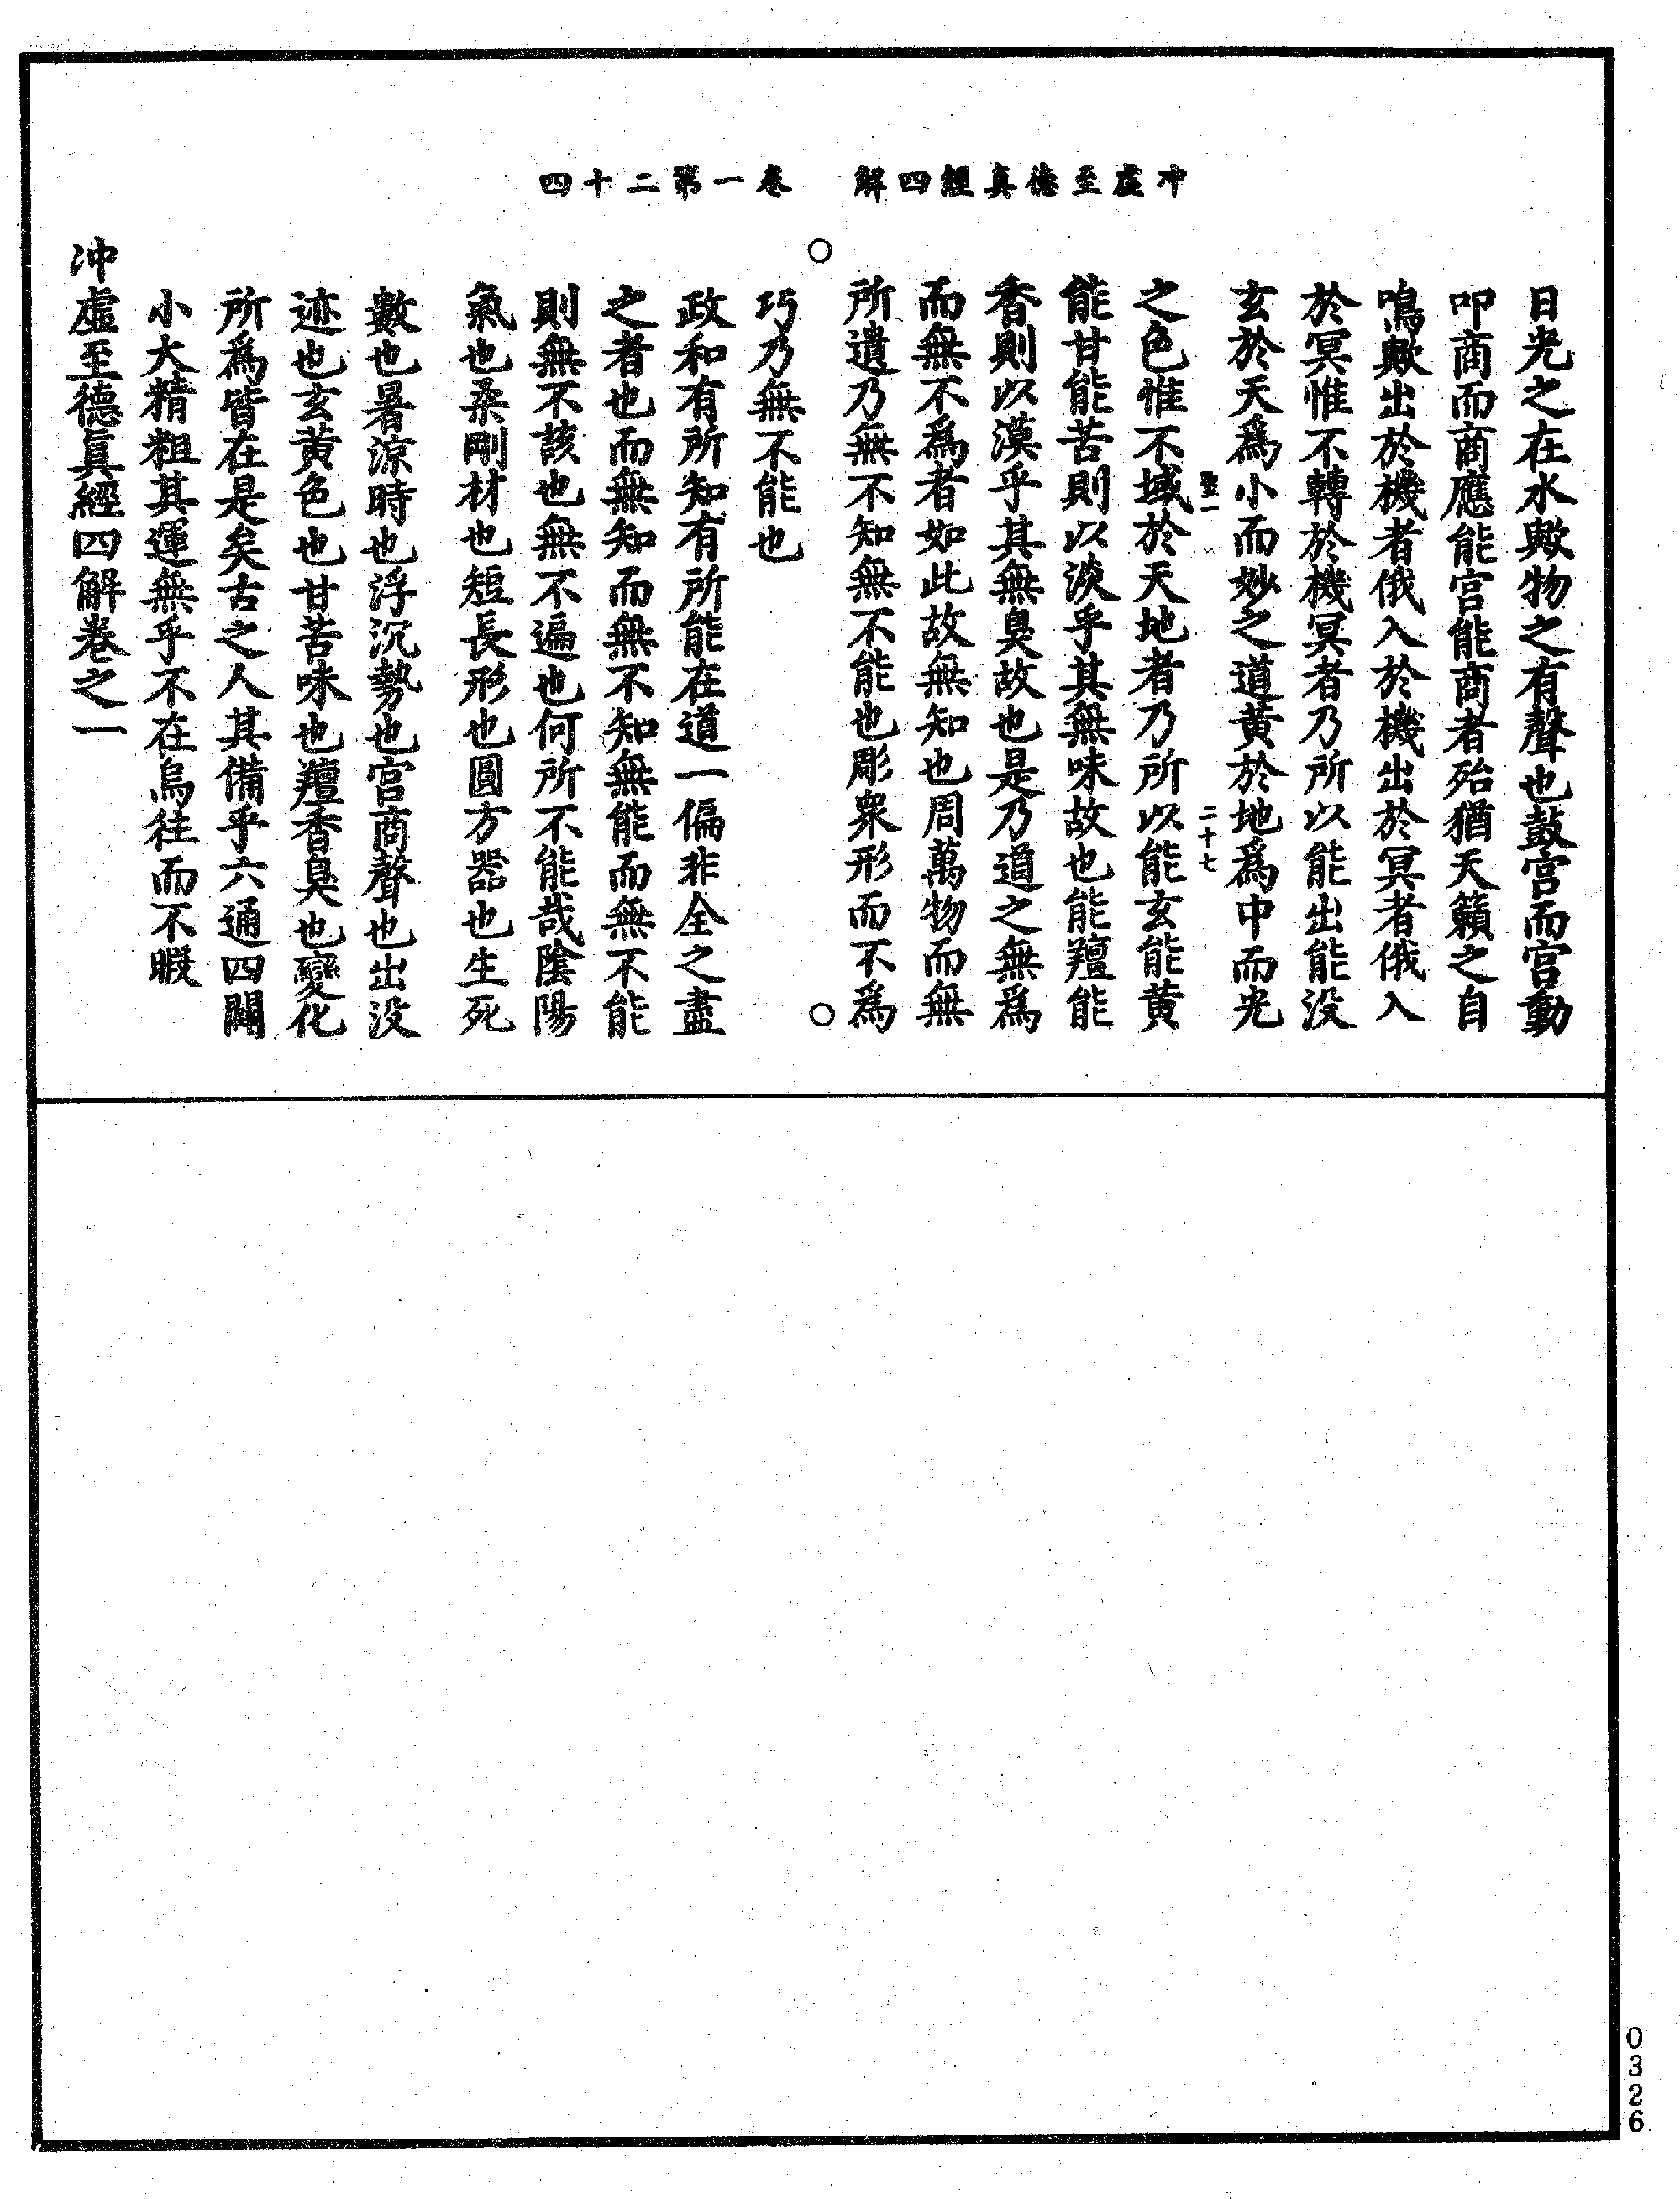 冲虛至德真經四解　卷一第二十四
日光之在水歟物之有聲也鼓宫而宫動
叩商而商應能宫能商者殆猶天籟之自
鳴歟出於機者俄入於機出於冥者俄入
於冥惟不轉於機冥者乃所以能出能没
玄於天爲小而妙之道黄於地爲中而光
聖一　二十七
之色惟不域於天地者乃所以能玄能黄
能甘能苦則以淡乎其無味故也能羶能
香則以漠乎其無臭故也是乃道之無爲
而無不爲者如此故無知也周萬物而無
所遺乃無不知無不能也彫衆形而不爲
巧乃無不能也
政和有所知有所能在道一偏非全之盡
之者也而無知而無不知無能而無不能
則無不該也無不遍也何所不能哉陰陽
氣也柔剛材也短長形也圓方器也生死
數也暑涼時也浮沉勢也宫商聲也出没
迹也玄黄色也甘苦味也羶香臭也變化
所爲皆在是矣古之人其備乎六通四闢
小大精粗其運無乎不在烏往而不暇
冲虛至德真經四解卷之一
0326